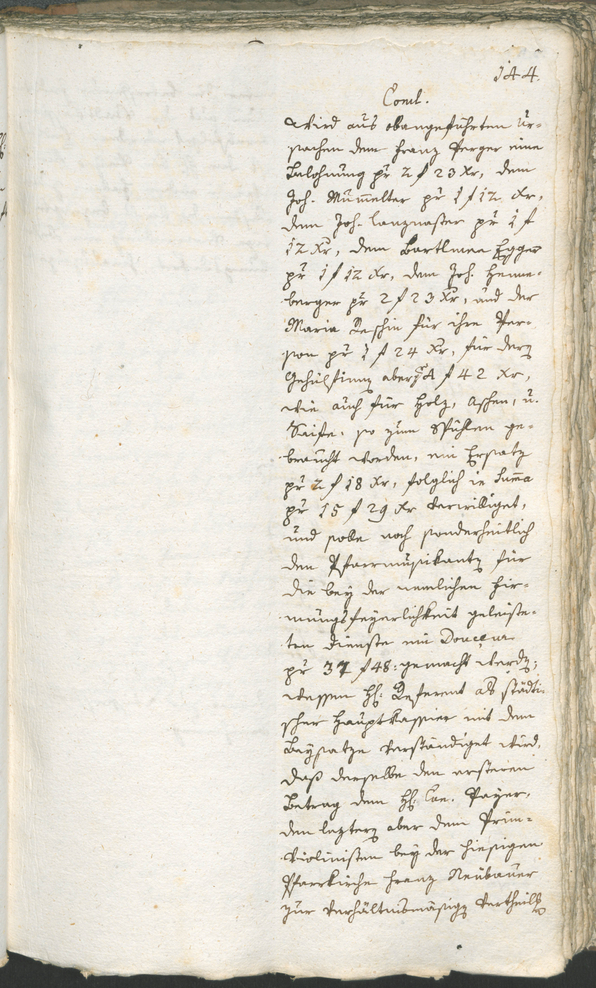 144.
Concl.
Wird aus obangeführten Ur¬
sachen dem Franz Perger eine
Belohnung pr 2 f 23 xr, dem
Joh. Mumelter pr 1 f 12 xr,
dem Joh. Lanznaster pr 1 f
12 xr, dem Bartlmee Egger
pr 1 f 12 xr, dem Joh. Hinne¬
berger pr 2 f 23 xr, und der
Maria Reschin für ihre Per¬
son pr 1 f 24 xr, für derz
Gehülfinnz aber pr 1 f 42 xr,
wie auch für Holz, Aschen, u.
Saife, so zum Spühlen ge¬
braucht worden, ein Ersatz
pr 2 f 18 xr, folglich in Suma
pr 15 f 29 xr verwilliget,
und solle noch sonderheitlich
den Pfarrmusikantz für
die bey der nemlichen Fir¬
mungsfeyerlichkeit geleiste¬
ten Dienste ein Douceur
pr 37 f 48: gemacht werdz;
wessen H: Referent als städti¬
scher Hauptkassier mit dem
Beysatze verständiget wird,
daß derselbe den ersteren
Betrag dem H: Con. Payer,
den leztern aber dem Prim¬
Violinisten bey der hiesigen
Pfarrkirche Franz Neubauer
zur verhältnismäsigz Vertheilg